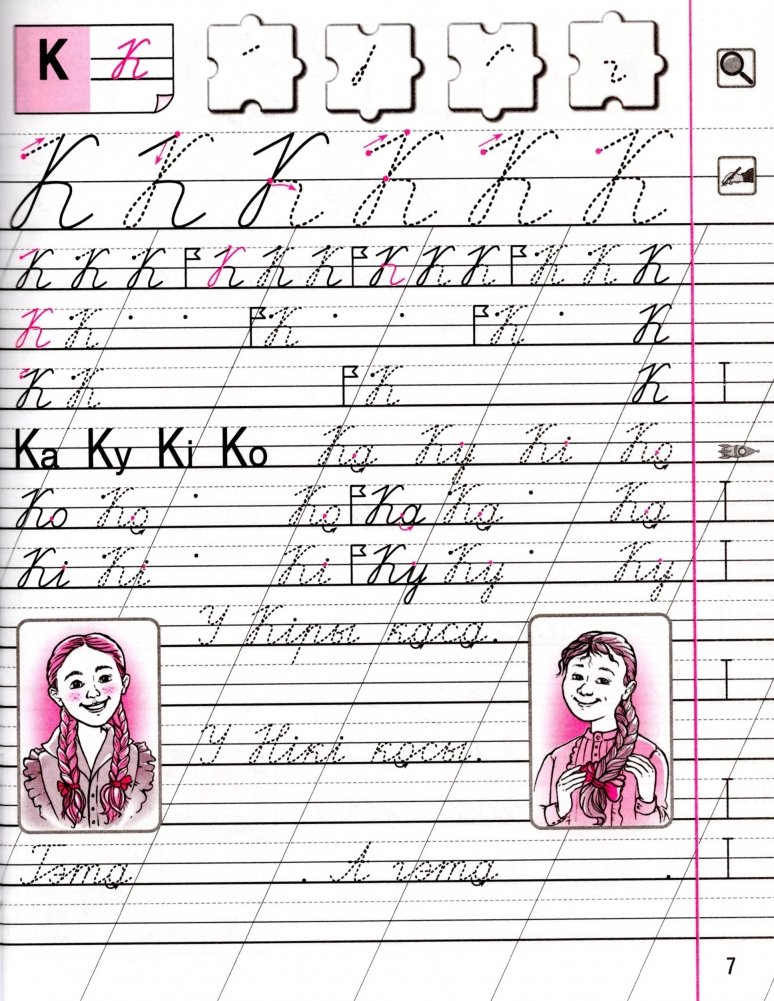 К К
К К К К К К
К К К К К К К К К К К К
К К К К К
К К К К
Ка Ку Кі Ко Ка Ку Кі Ко
Ко Ко Ко Ка Ка Ка
Кі Кі Кі Ку Ку Ку
У Кіры каса.
У Нікі касы.
Гэта . А гэта .
7